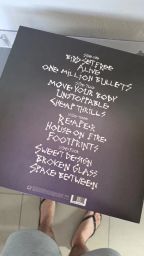 SIDE ONE
BIRD SET FREE
ALIVE
ONE MILLION BULLETS
SIDE TWO
MOVE YOUR BODY
UNSTOPPABLE
CHEAP THRILLS
REAPER
HOUSE ON FIRE
FOOTPRINTS
SIDE FOUR
SWEET DESIGN
BROKEN GLASS
SPACE BETWEEN